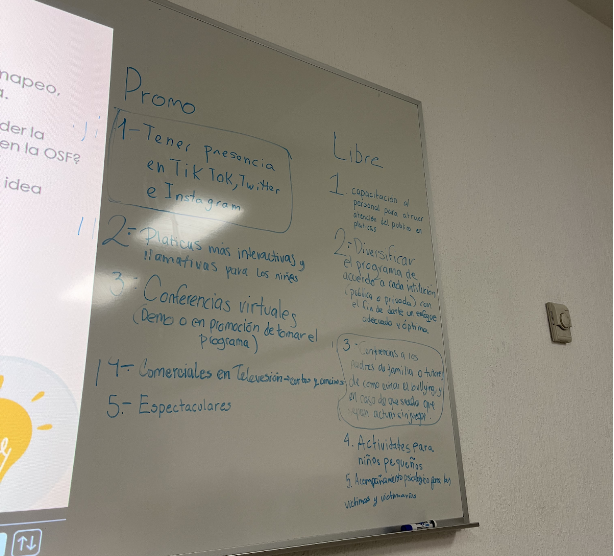 mapeo,
der la
en la OSF?
idea
Promo
1-Tener presencia
en TiKToK, Twitter
e Instagram
2.- Platicas mas interactivas y
llamativas para los niños
3.- Conferencias virtuales
(Demo o en promoción de tomar el
programa)
4.- Comerciales en Televesión→cortos y
5.- Espectaculares
Libre
1. capacitación al
personal para atraer
atención del publico en
platicas
2.- Diversificar
el programa de
acuerdo a cada intitución
(publica o privada) con
el fin de darle un enfoque
adecuado y óptimo.
3- a los
padres de familia o tutores
de como evitar el bullying y
en caso de que suceda que
sepan
4. Actividades para
niños pequeños
5. Acompañamiento psicologico para las
victimas y victimarios